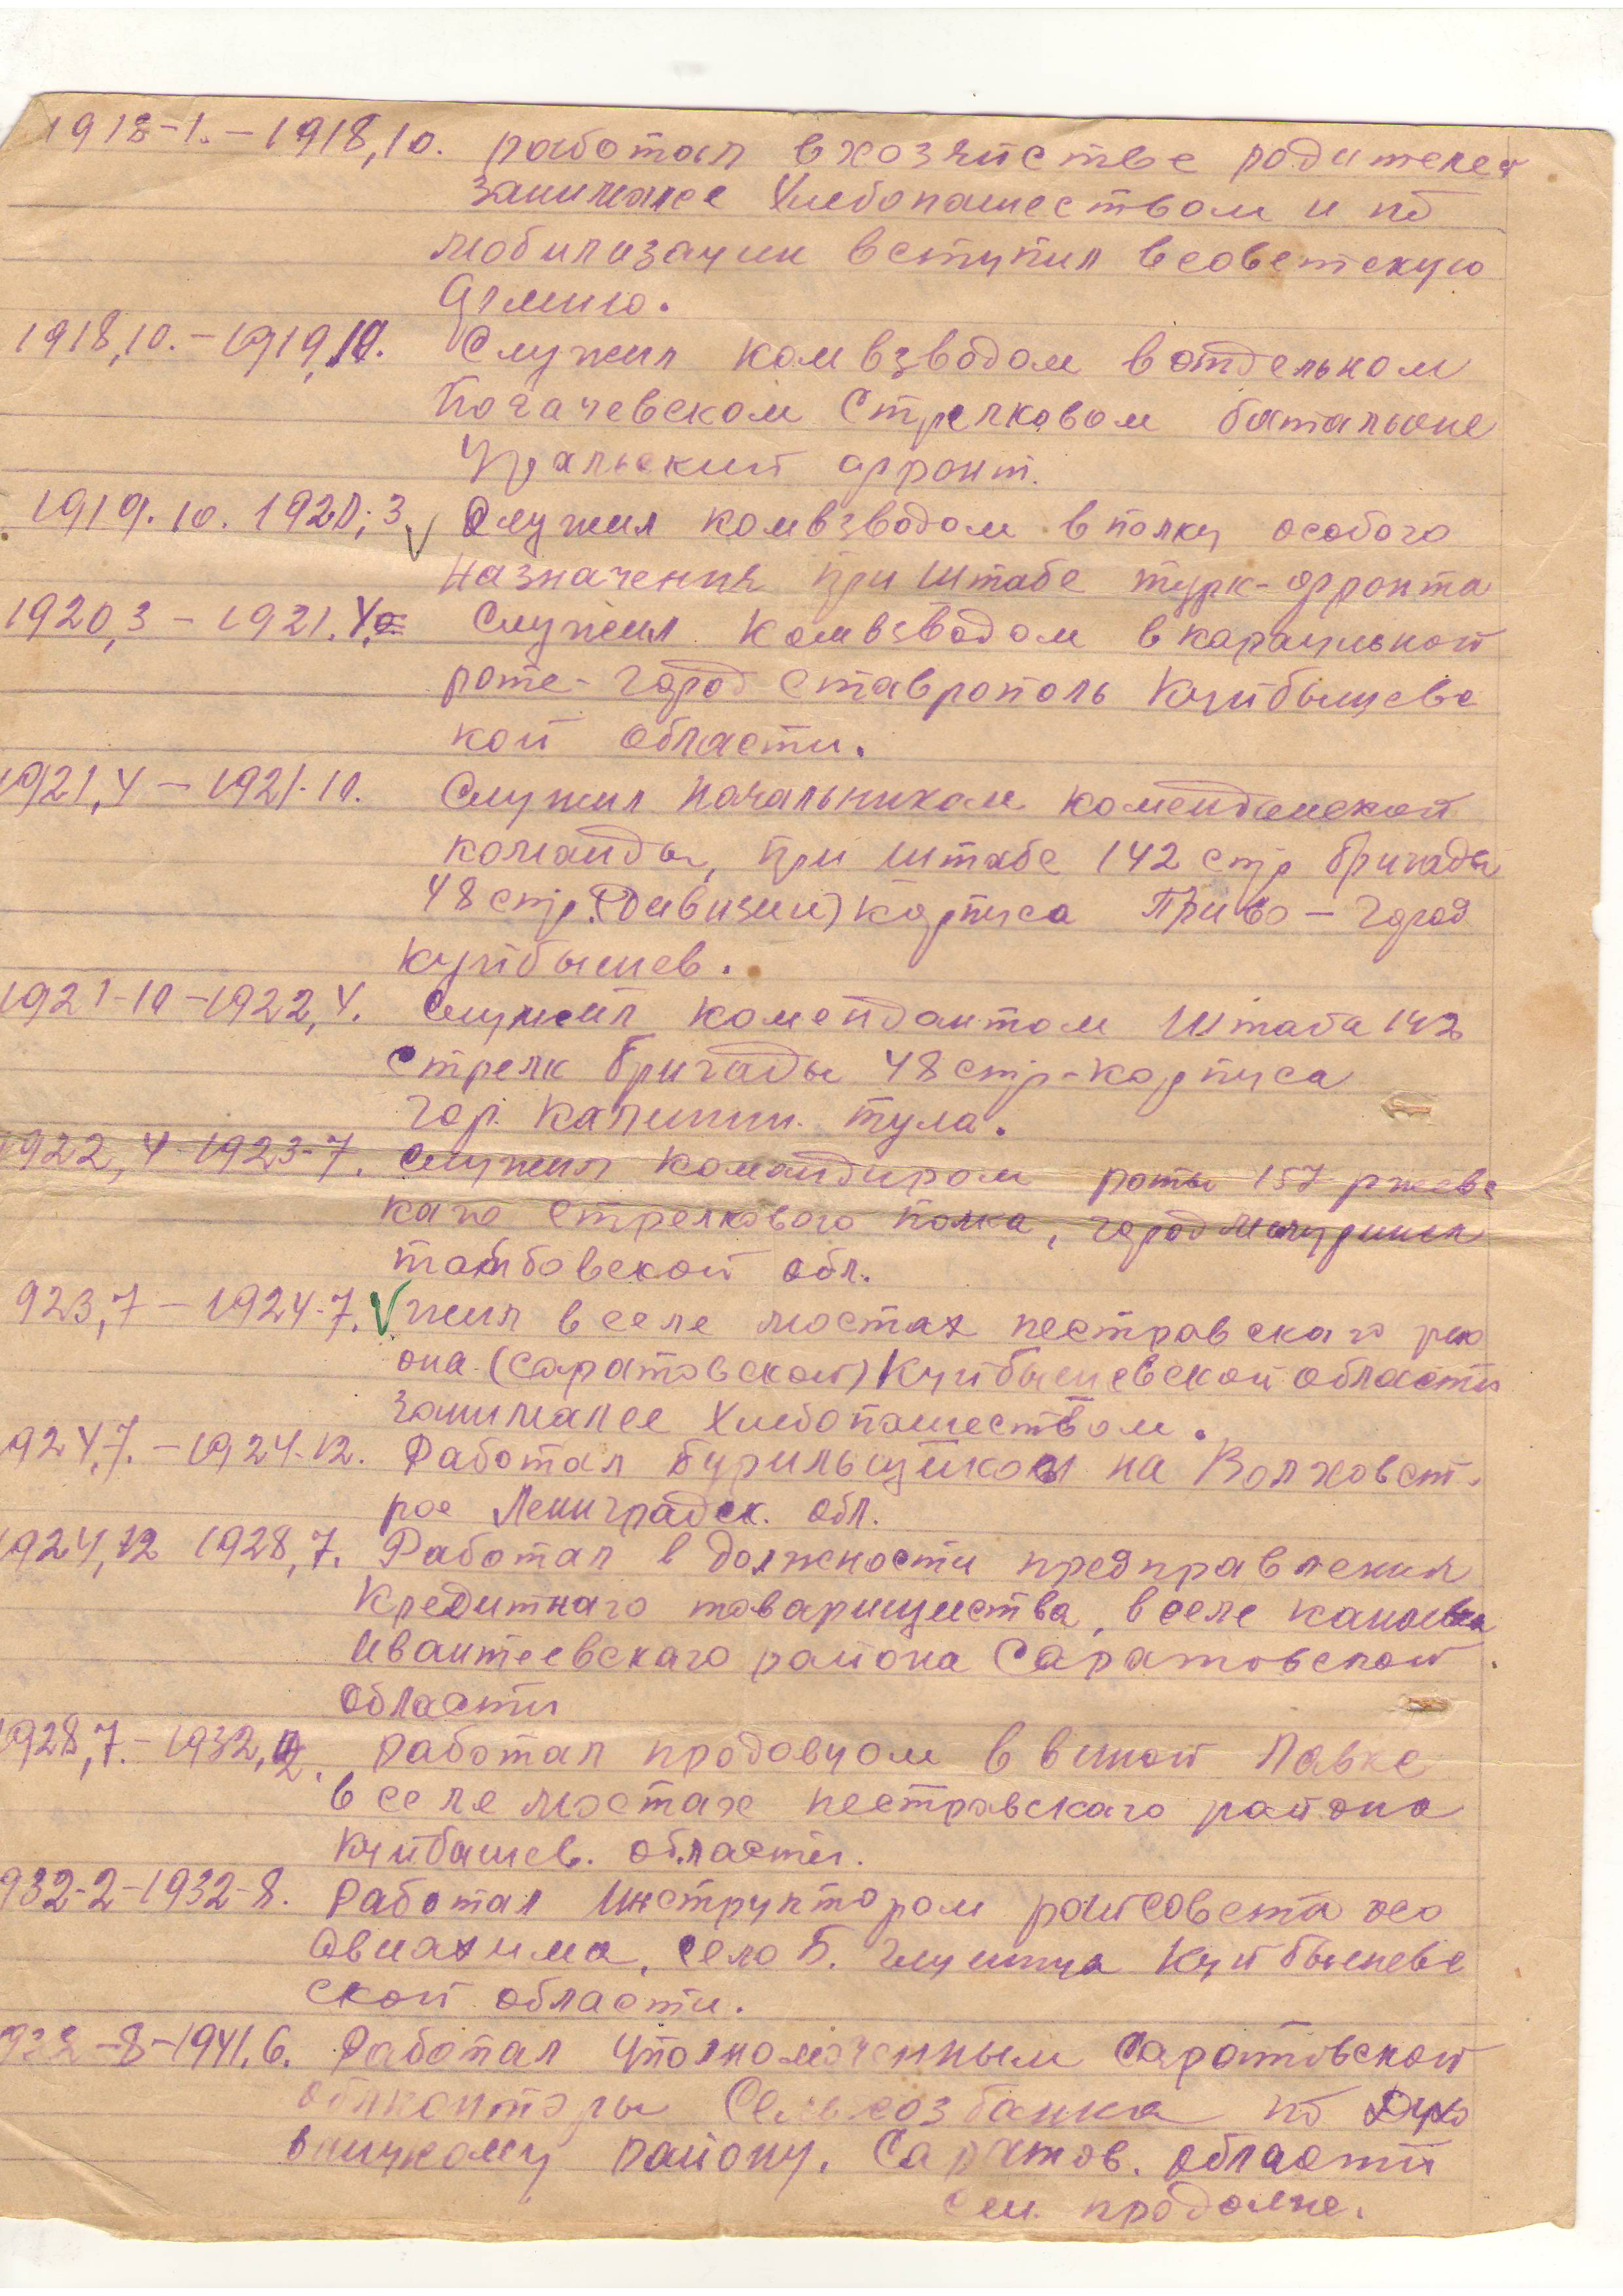 1918-1. – 1918,10. работал в хозяйстве родителей
занимался Хлебопашеством и по
мобилизации вступил в советскую
Армию.
1918,10. – 1919,10. Служил комвзводом в отдельном
Погачевском Стрелковом баталионе
Уральский фронт.
1919. 10. 1920; 3 Служил комвзводом в полку особого
назначения при Штабе турк-фронта
1920,3 – 1921.4 Служил комвзводом в караульной
роте - город Ставрополь Куйбышевс
кой области.
1921,4 – 1921-10. Служил Начальником коменданской
команды, при штабе 142 стр бригады
48 стр.(Дивизии) корпуса ПриВо – город
Куйбышев.
1921-10 – 1922,4. Служил комендантом Штаба 142
стрелк бригады 48 стр-корпуса
гор. Калинин. тула.
1922,4-1923-7. Служил командиром роты 157 ржевс
каго стрелкового полка, город Мичуринск
тамбовской обл.
923,7 – 1924-7. жил в селе мостах пестравскаго рай
она (Саратовской) Куйбышевской области
занимался Хлебопашеством.
924,7. – 1924-12. Работал бурильщиком на Волховст.
рое Ленинградск. обл.
1924,12 1928,7. Работал в должности предправления
Кредитнаго товарищества, в селе канаевка
Ивантеевскаго района Саратовской
области
1928,7. – 1932,2. работал продовцом в виной Лавке
в селе мостах пестравскаго района
Куйбашев. области.
932-2-1932-8. работал Инструктором райсовета осо
авиахима, село Б. Глушица Куйбышевс
ской области.
932-8-1941.6. Работал уполномоченным Саратовской
облконторы Сельхозбанка по Духо
вницкому району. Саратов. области
см. продолже.